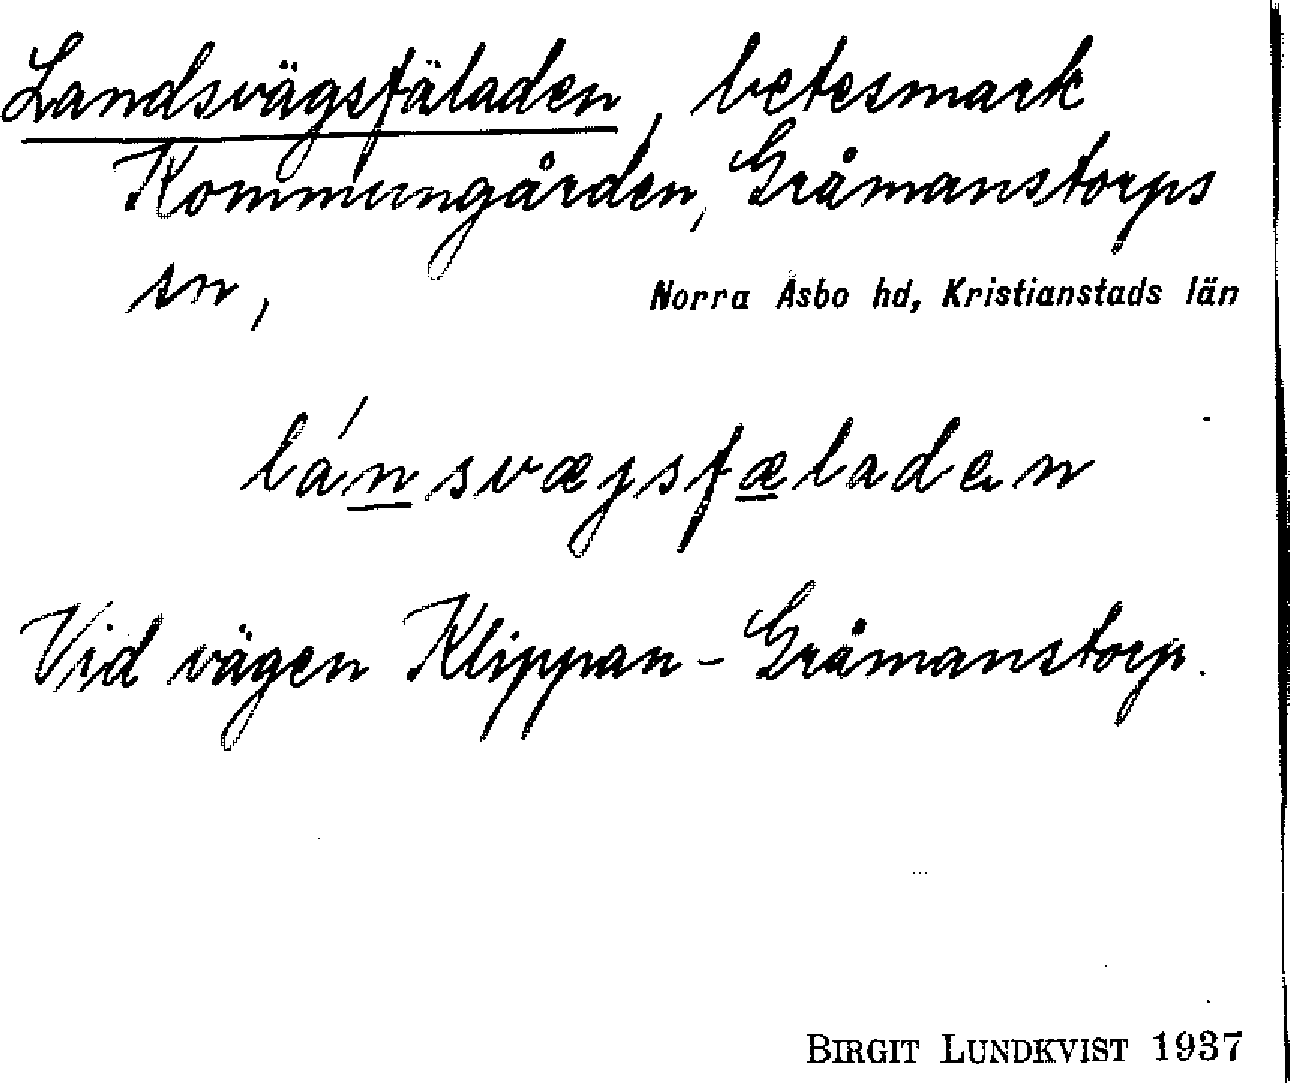 Landsvägsfäladen, betesmark
Kommungården, Gråmanstorps
sn, Norra Åsbo hd, Kristianstads län
lánsvægsfæladen
Vid vägen Klippan - Gråmanstorp.
BIRGIT LUNDKVIST 1937